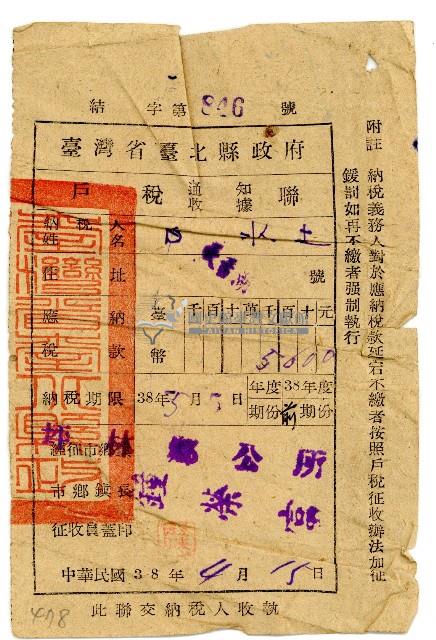 結字第 846 號
臺灣省臺北縣政府
戶稅 通知收據 聯
納稅人姓名 水土
住址 號
應納稅款 臺幣 千百十萬千百十元 5600
納稅期限 38年5月5日 年度38年度 期份前期份
經征市鄉 坪林鄉公所
市鄉鎮長 鐘 榮 富
征收員蓋印
中華民國38年4月15日
此聯交納稅人收執
附註 納稅義務人對於應納稅款延宕不繳者按照戶稅征收辦法加征
鍰罰如再不繳者强制執行
478
TAIWAN HISTORICA